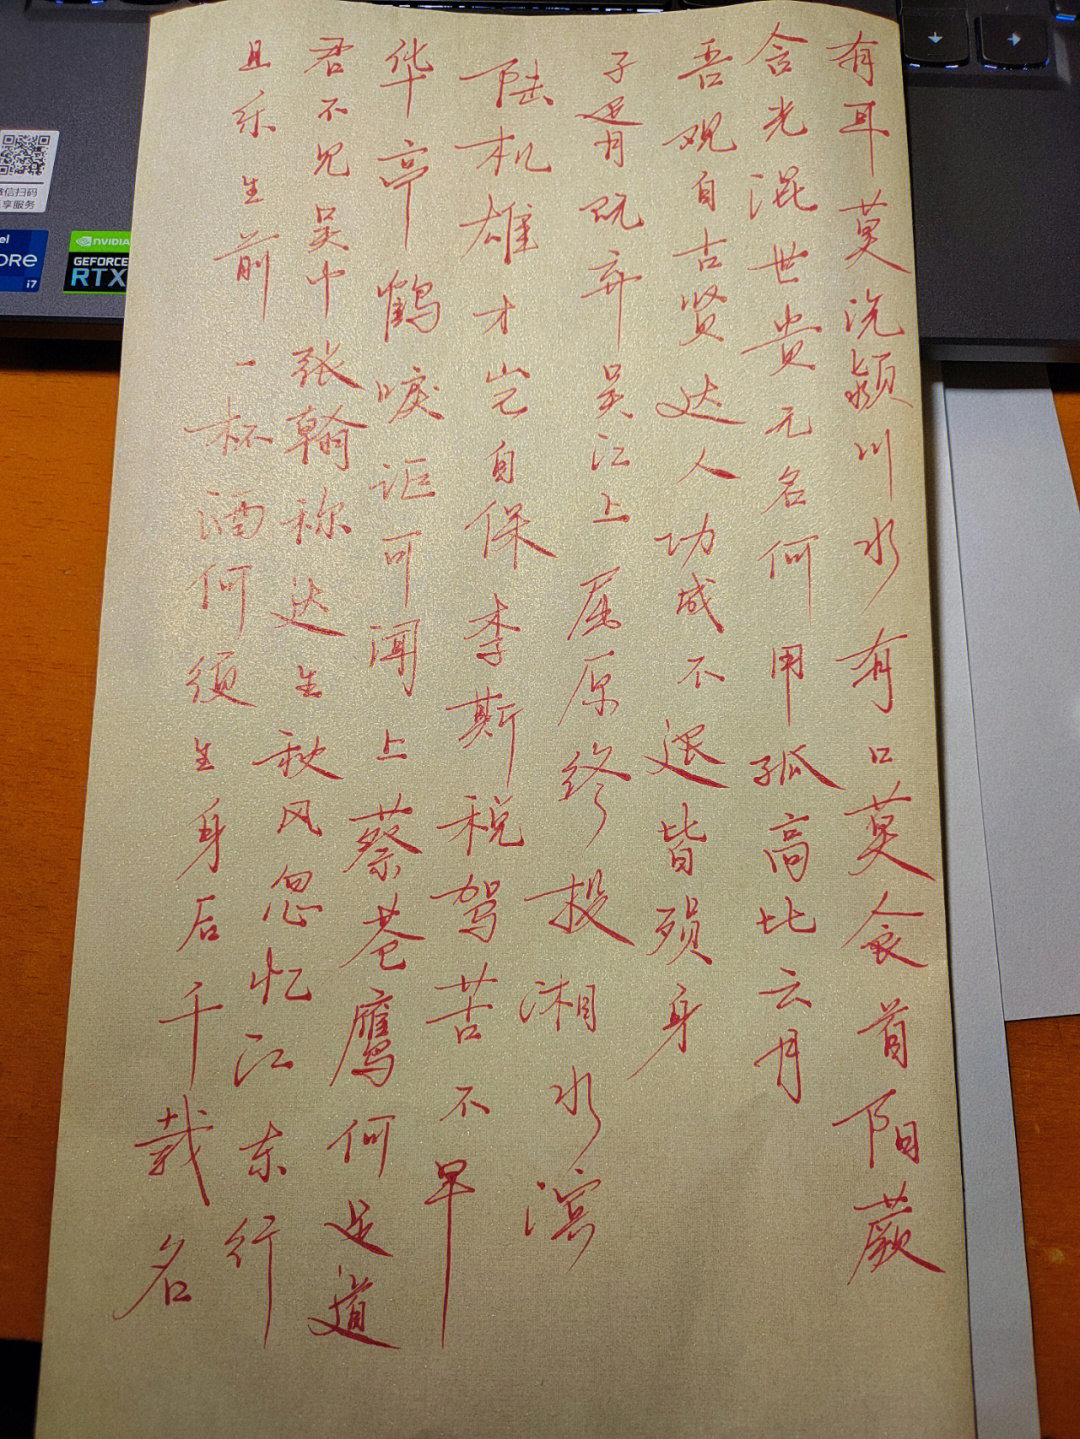 有耳莫洗颍川水有口莫食首阳蕨
含光混世贵无名何用孤高比云月
吾观自古贤达人功成不退皆殒身
子胥既弃吴江上屈原终投湘水滨
陆机雄才岂自保李斯税驾苦不早
华亭鹤唳讵可闻上蔡苍鹰何足道
君不见吴中张翰称达生秋风忽忆江东行
且乐生前一杯酒何须生身后千载名
微信扫码
享服务
intel
CORE
i7
NVIDIA
GEFORCE
RTX